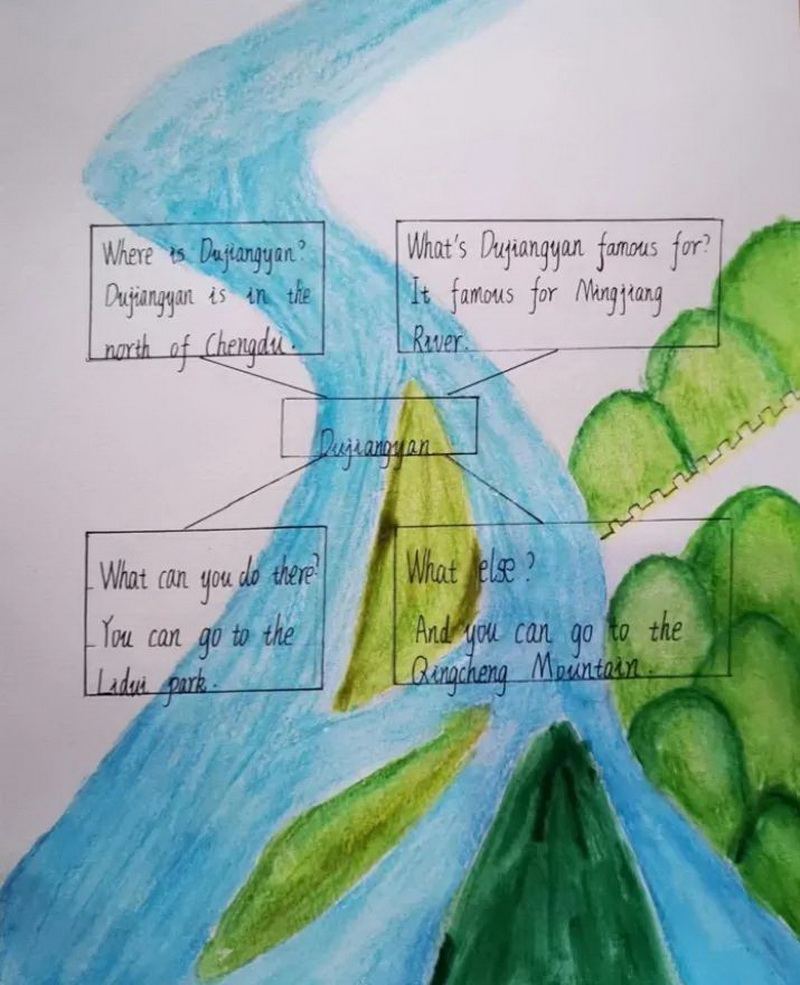 Where is Dujiangyan?
Dujiangyan is in the
north of Chengdu.
What's Dujiangyan famous for?
It famous for Mingjiang
River.
Dujiangyan
What can you do there?
You can go to the
Lidui park.
What else?
And you can go to the
Qingcheng Mountain.